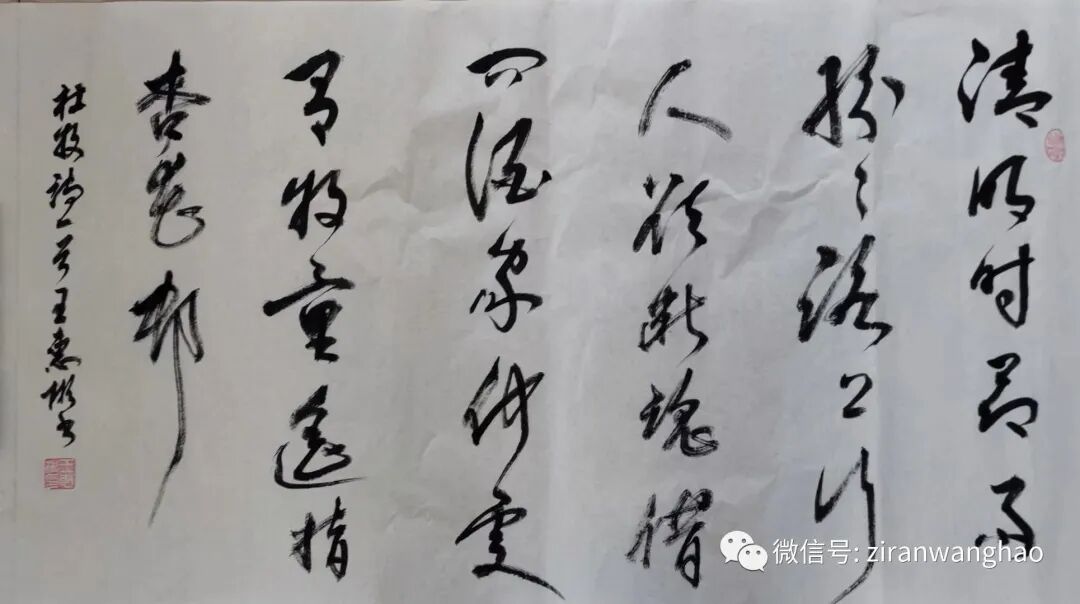 清明时节雨
纷〻路上行
人欲断魂借
问酒家何处
有牧童遥指
杏花村
杜牧诗一首 王惠书
微信号: ziranwanghao